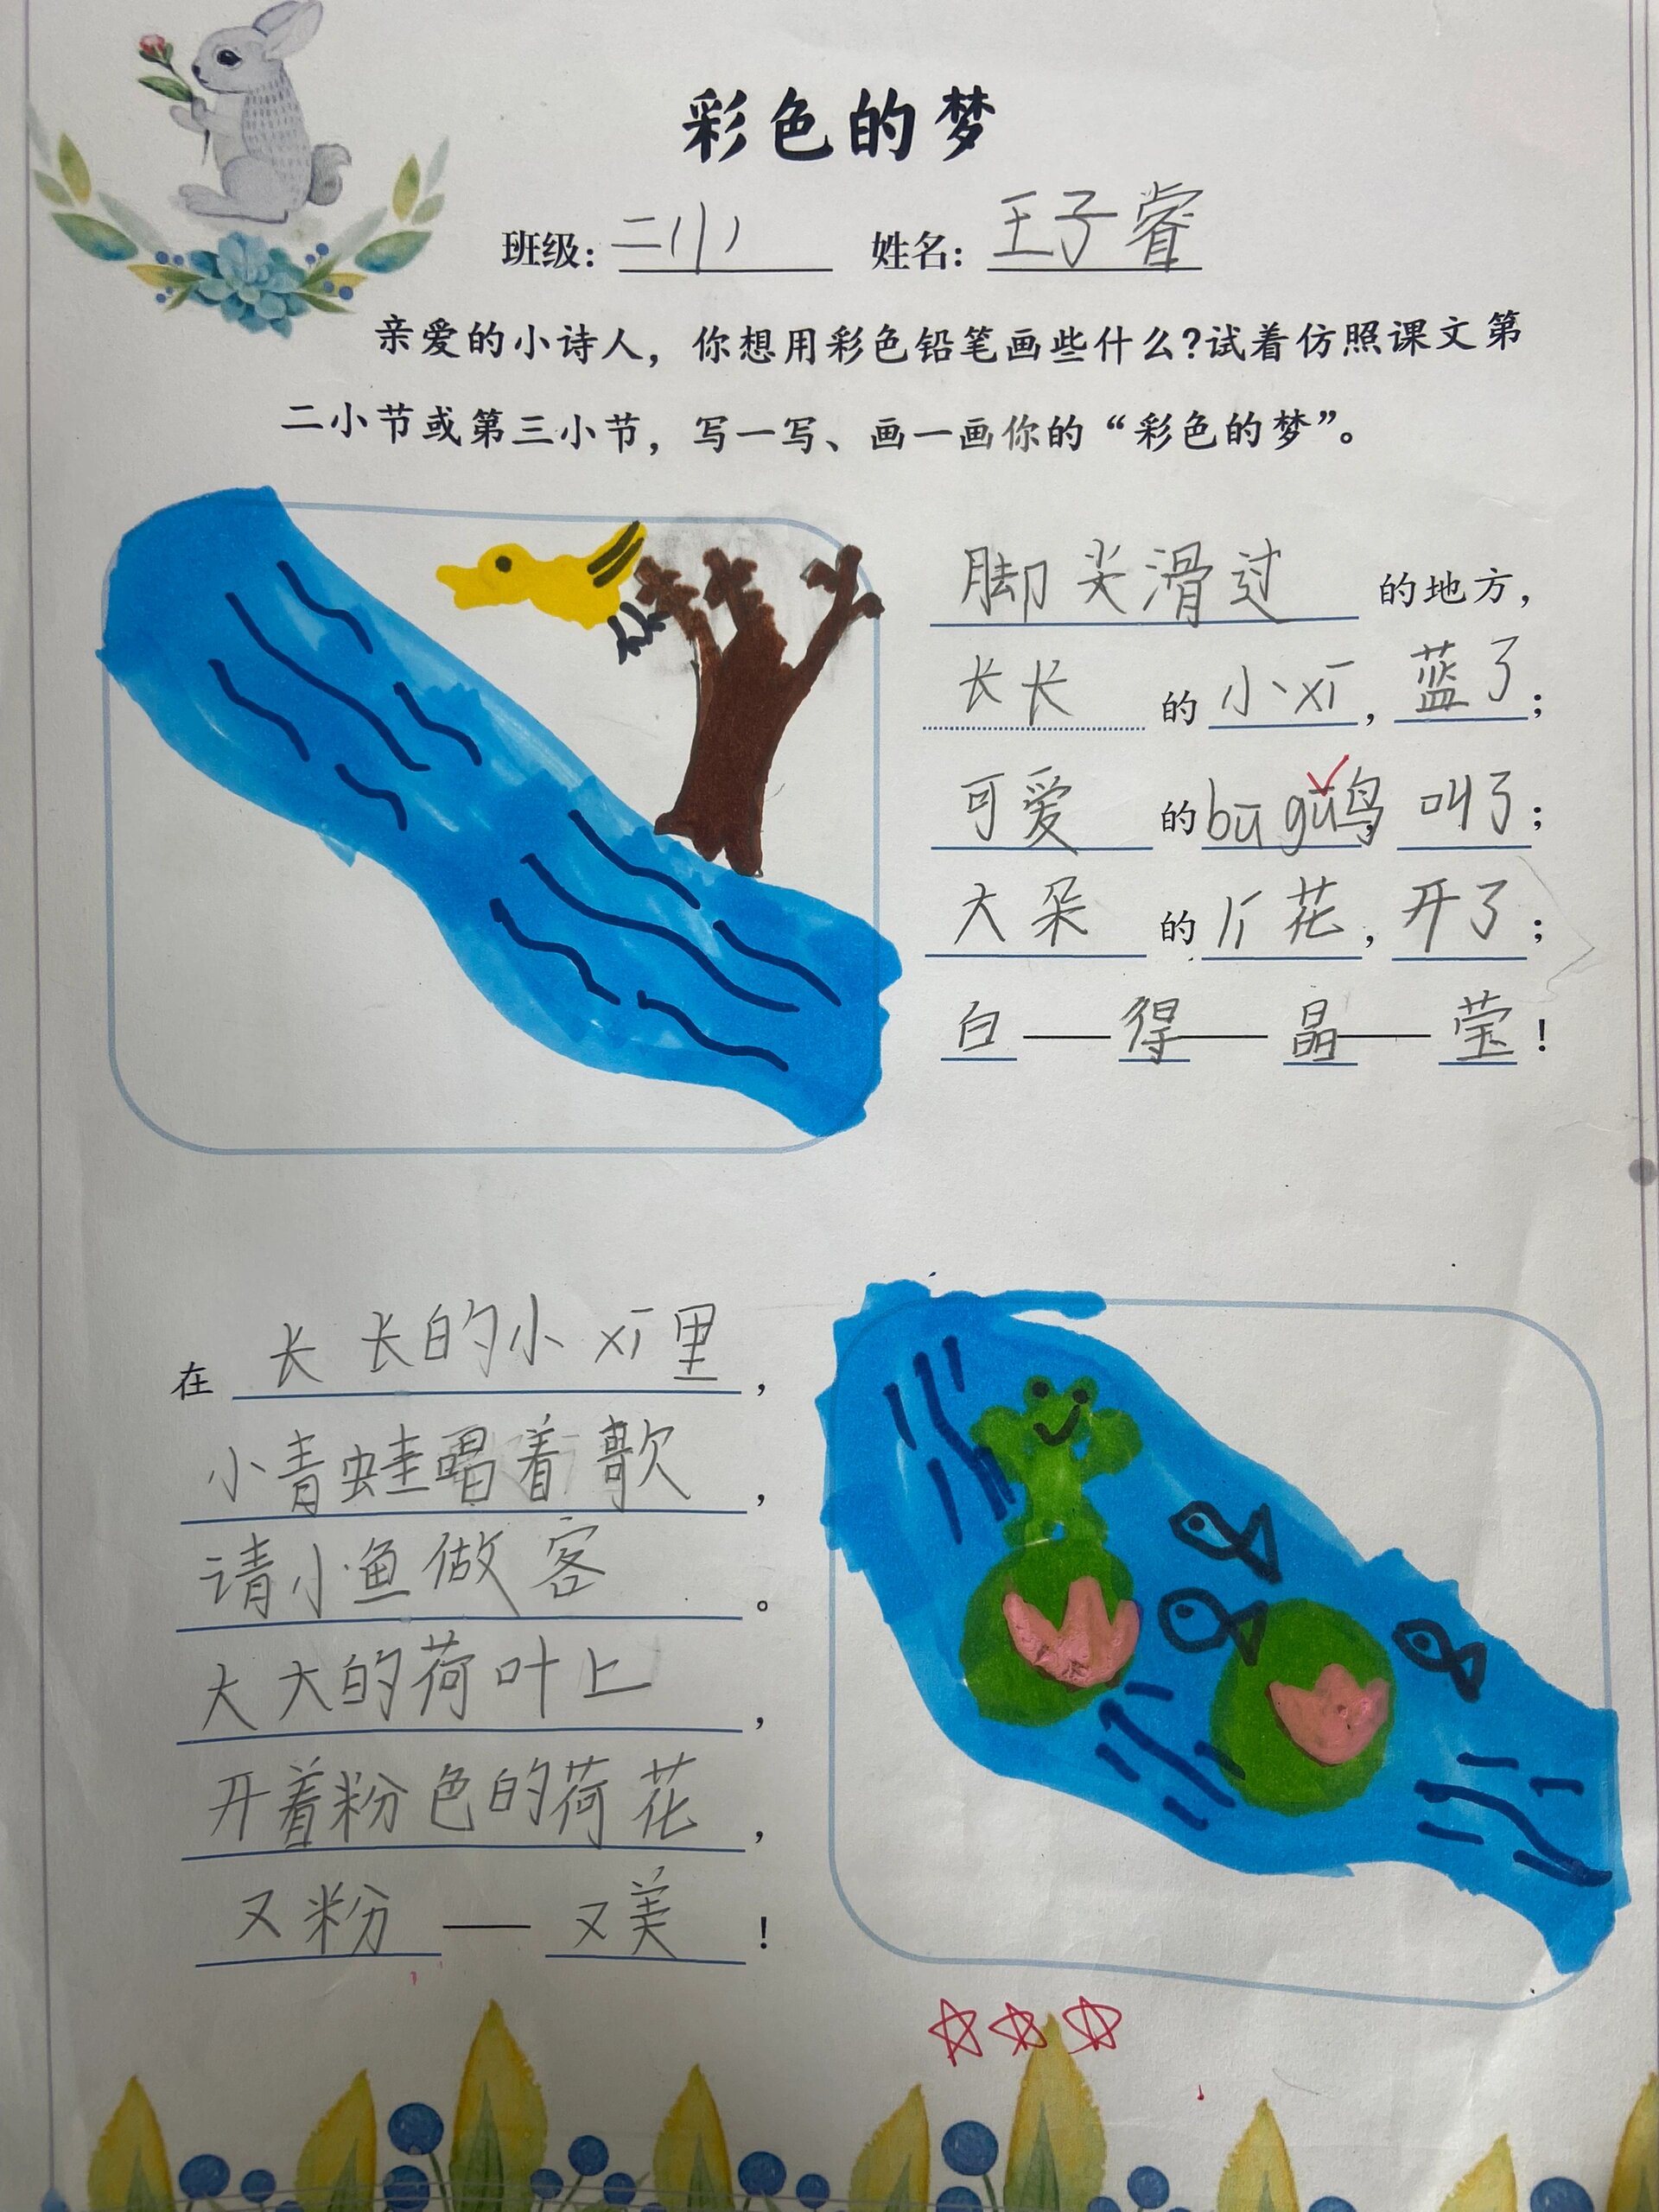 彩色的梦
班级：二(1) 姓名：王子睿
亲爱的小诗人，你想用彩色铅笔画些什么？试着仿照课文第
二小节或第三小节，写一写、画一画你的“彩色的梦”。
脚尖滑过的地方，
长长的小xī，蓝了；
可爱的bū gǔ鸟 叫了；
大朵的 花，开了；
白——得——晶——莹！
在长长的小xī里，
小青蛙唱着歌，
请小鱼做客。
大大的荷叶上，
开着粉色的荷花，
又粉——又美！